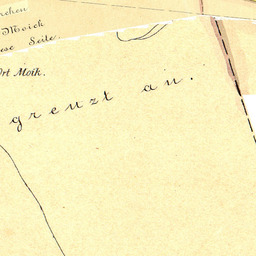 Moick
ese Seite.
Ort Moik.
grenzt an.